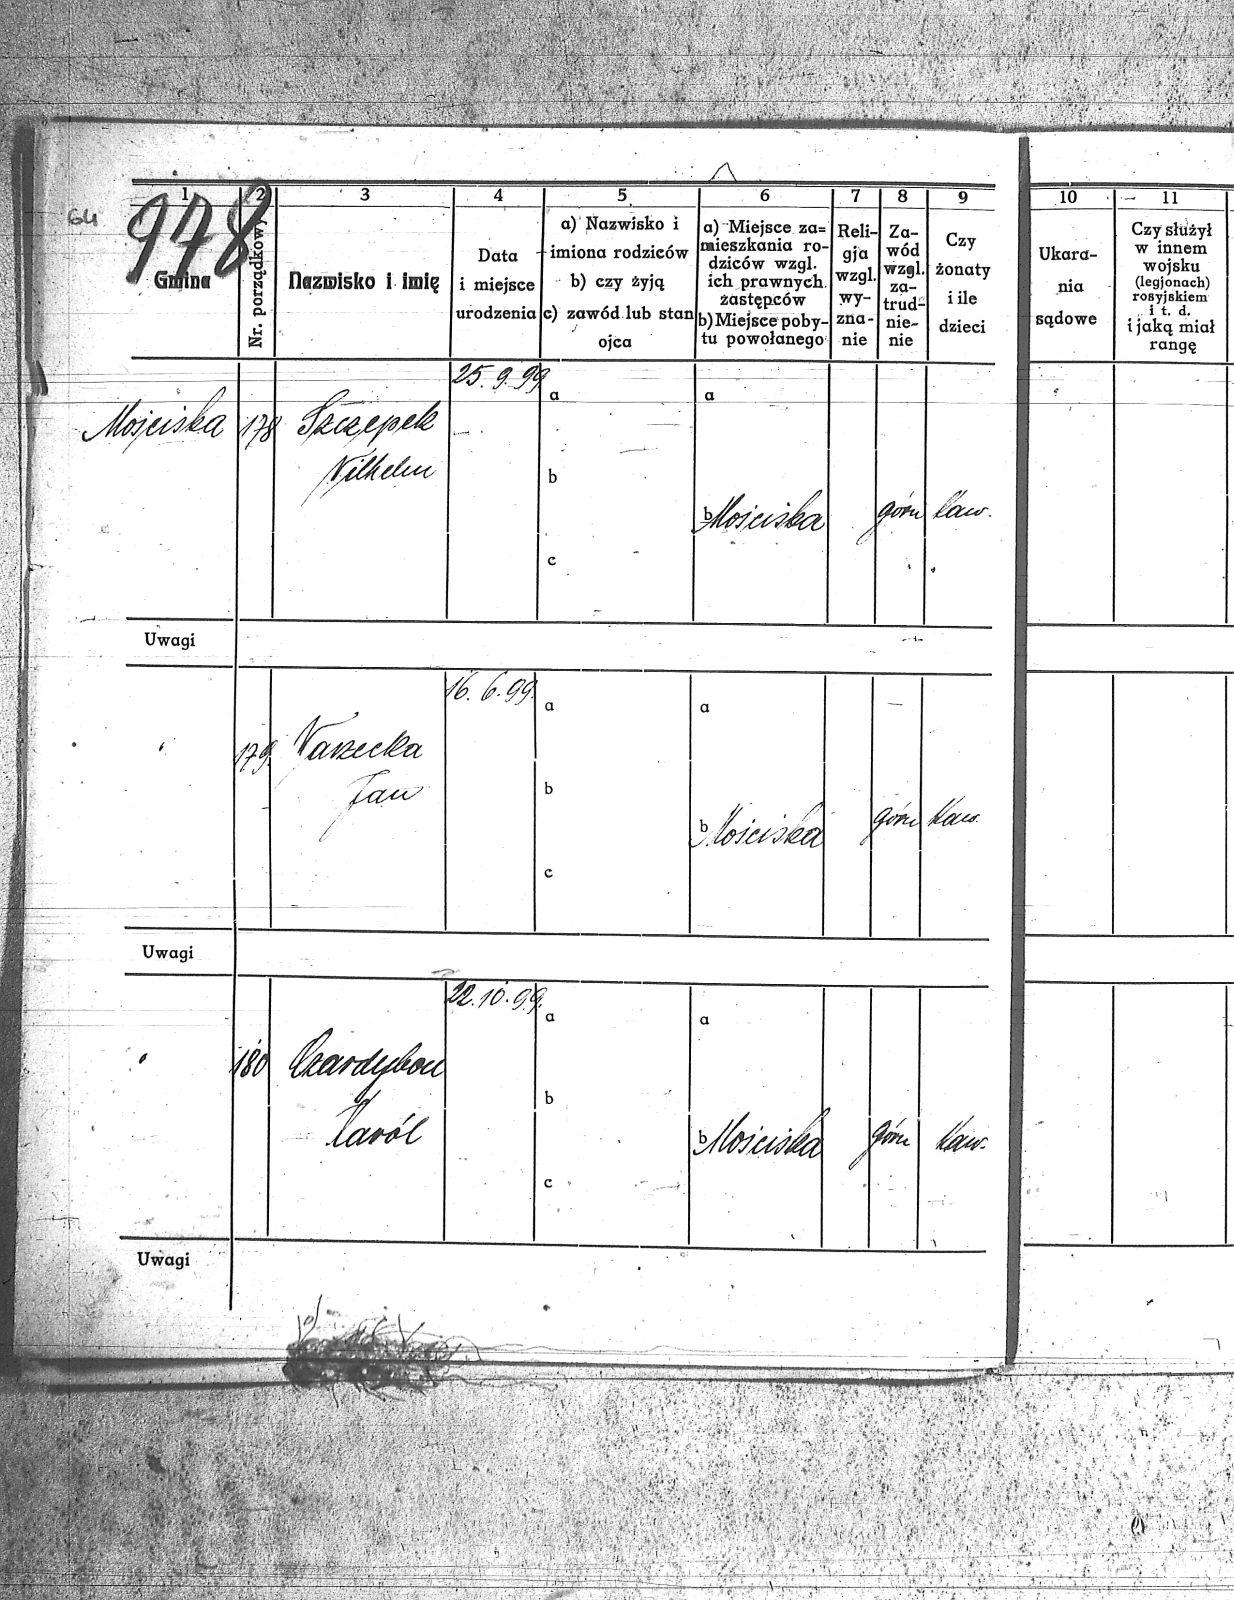 64
978
1
2
3
4
5
6
7
8
9
10
11
Gmina
Nr. porządkowy
Nazwisko i imię
Data
i miejsce
urodzenia
a) Nazwisko i
imiona rodziców
b) czy żyją
c) zawód lub stan
ojca
a) Miejsce za=
mieszkania ro-
dziców wzgl.
ich prawnych
zastępców
b) Miejsce poby-
tu powołanego
Reli-
gja
wzgl.
wy-
zna-
nie
Za-
wód
wzgl.
za-
trud-
nie-
nie
Czy
żonaty
i ile
dzieci
Ukara-
nia
sądowe
Czy służył
w innem
wojsku
(legjonach)
rosyjskiem
i t. d.
i jaką miał
rangę
25. 9. 99.
a
a
Mościska
178
Szczepek
Wilhelm
b
b Mościska
górn
kaw.
c
Uwagi
16. 6. 99.
a
a
"
179.
Warzecka
Jan
b
b Mościska
górn
kaw.
c
Uwagi
22. 10. 99.
a
a
"
180
Czardybon
Karól
b
b Mościska
górn
kaw.
c
Uwagi